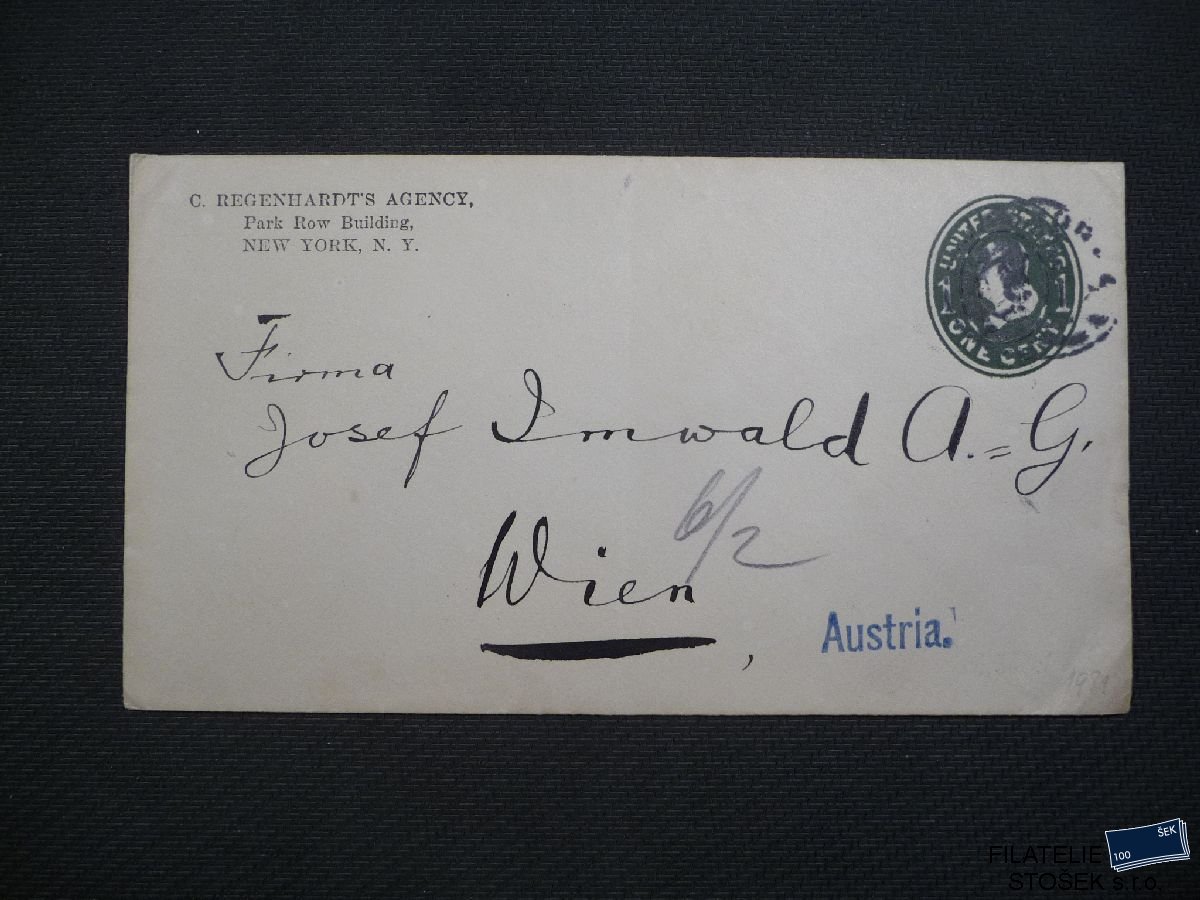 C. REGENHARDT'S AGENCY,
Park Row Building,
NEW YORK, N. Y.
UNITED STATES
1 1
ONE CENT
Firma
Josef Imwald A.=G.
6/2
Wien,
Austria.
100 ŠEK
FILATELIE
STOŠEK s.r.o.